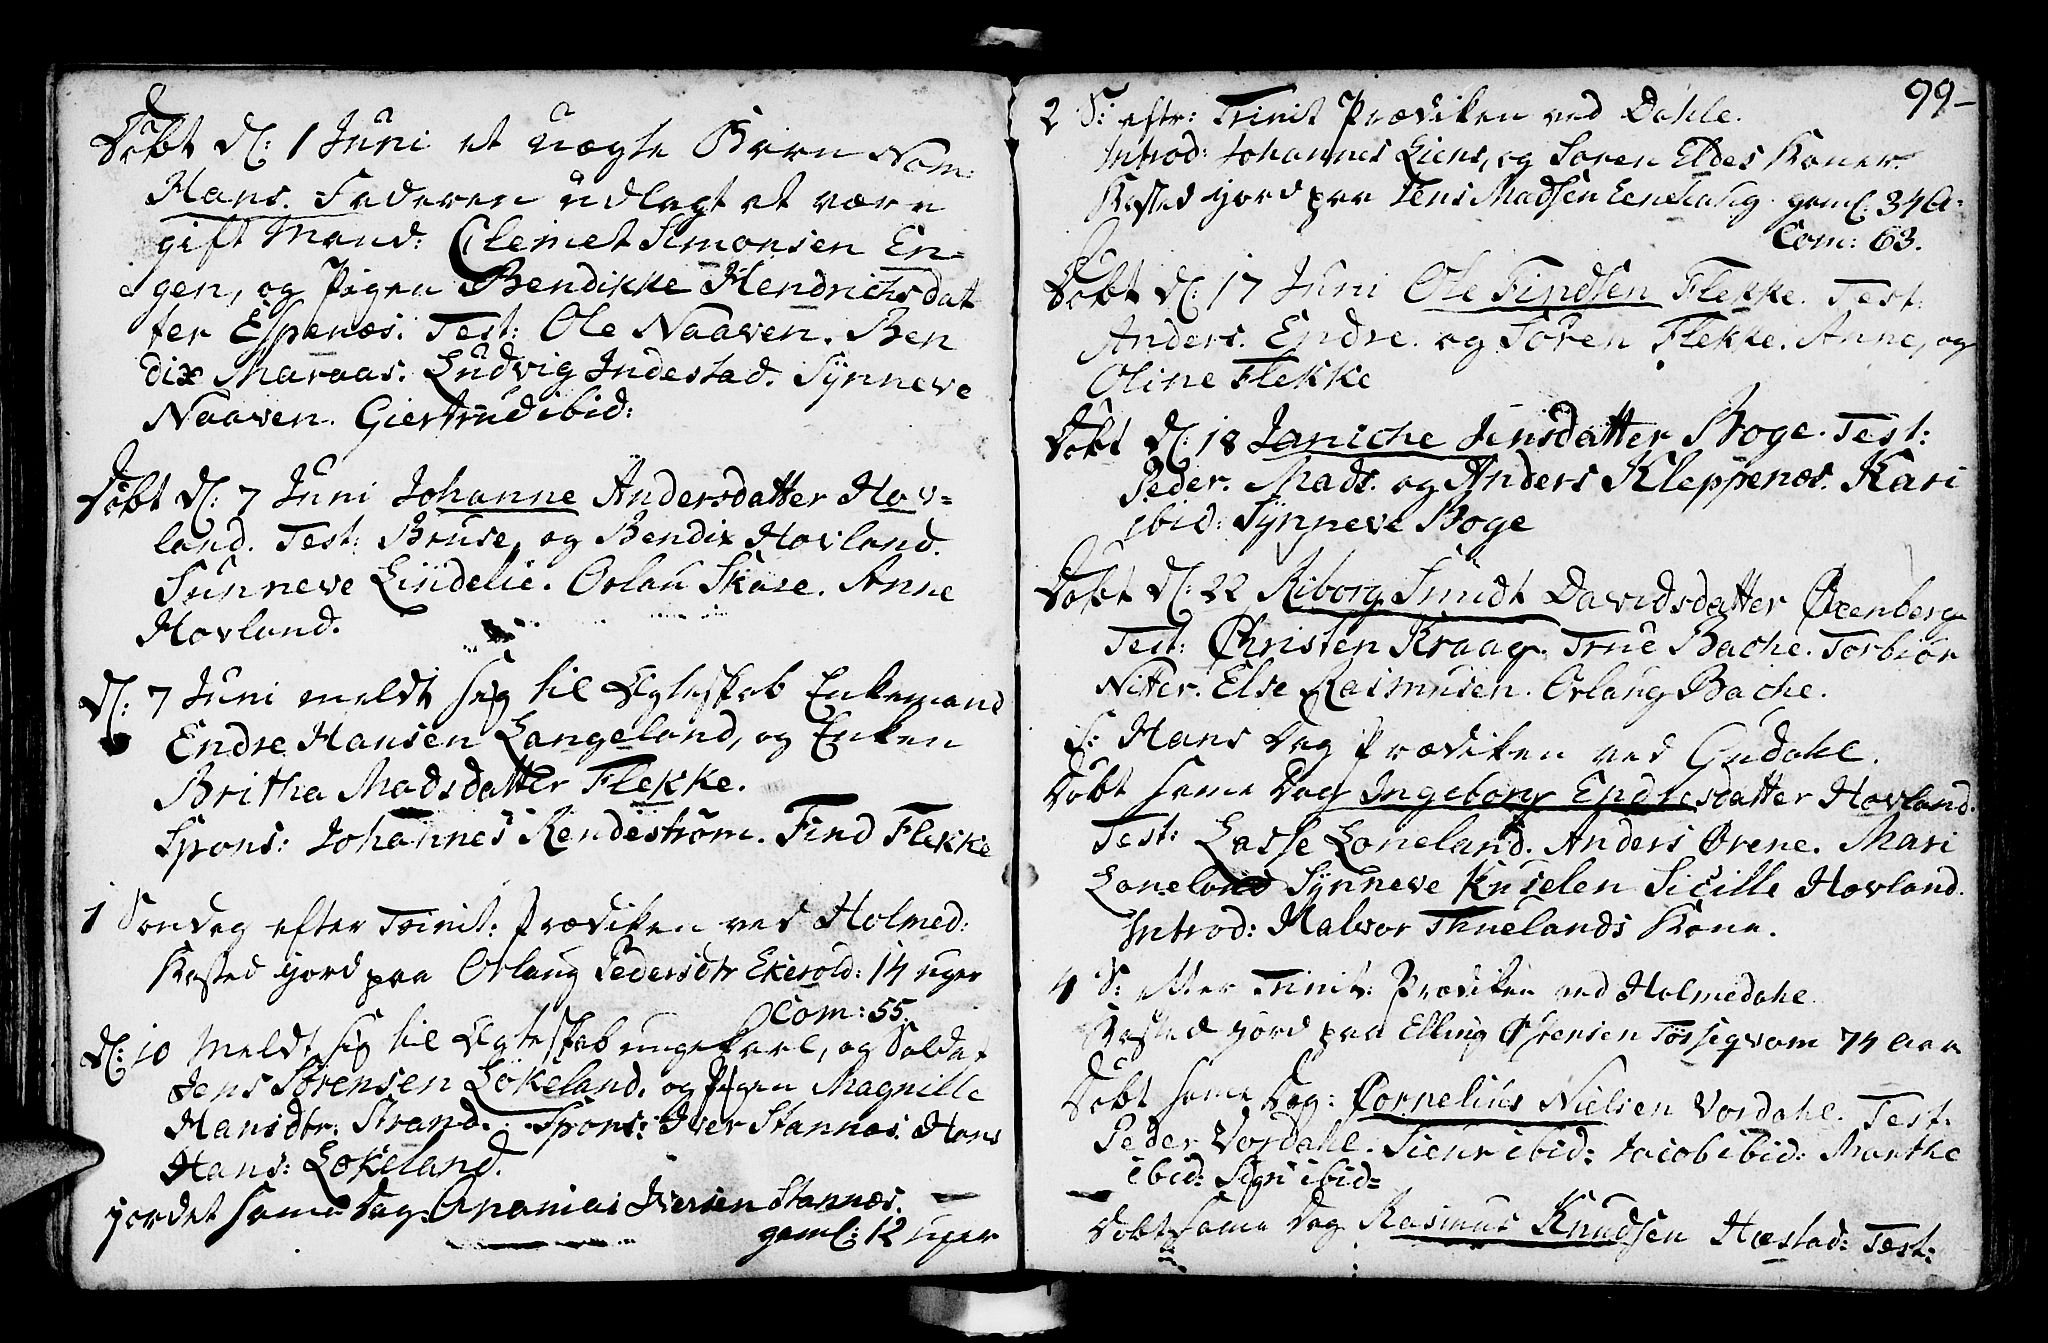 Døbt d: 1 Juni et uægte Barn Nom:
Hans. Faderen udlagt at være
gift Mand: Clemet Simonsen En-
gen, og Pigen Bendikke Hendrichsdat
ter Espenæs. Test: Ole Naaven. Ben
dix Maraas. Ludvig Indestad. Synneve
Naaven. Giertrud ibid:
Døbt d: 7 Juni Johanne Andersdatter Hov-
land. Test: Bruse, og Bendix Hovland.
Sunneve Lindelie. Orlau Skare. Anne
Hovland.
d: 7 Juni meldt sig til Ægteskab Enkemand
Endre Hansen Langeland, og Enken
Britha Madsdatter Flekke.
Spons: Johannes Rendestrøm. Find Flekke
1 Søndag efter Trinit: Prædiken ved Holmed:
Kasted Jord paa Orlaug Pedersdtr Ekerold: 14 uger
Com: 55.
d: 10 Meldt sig til Ægteskab ungekarl, og Soldat
Jens Sørensen Løkeland. og Pigen Magnille
Hansdtr: Strand. Spons: Iver Stannæs. Hans
Hans: Løkeland.
jordet same Dag: Ananias Iversen Stannæs.
gaml: 12 uger
99-
2 S: eftr: Trinit Prædiken ved Dahle.
Introd: Johannes Liens, og Søren Eldes Koner
Kasted Jord paa Jens Madsen Eenehaug. gaml: 34 A:
Com: 63.
Døbt d: 17 Juni Ole Findsen Flekke. Test:
Anders. Endre. og Søren Flekke. Anne, og
Oline Flekke
Døbt d: 18 Janiche Jensdatter Boge. Test:
Peder. Mads. og Anders Kleppenæs. Kari
ibid: Synneve Boge
Døbt d: 22 Riborg Smidt Davidsdatter Øxenberg
Test: Christen Kraag. True Bache. Torbiør
Nitter. Else Rasmusen. Orlaug Bache.
S: Hans Dag Prædiken ved Gudahl.
Døbt same Dag Ingeborg Endresdatter Hovland.
Test: Lasse Loneland. Anders Ørene. Mari
Loneland Synneve Kuselen Sicille Hovland.
Introd: Halvor Thuelands Kone.
4 S: efter Trinit: Prædiken ved Holmedahl
Kasted Jord paa Elling Østensen Tøssegvam 74 Aar
Døbt same Dag: Cornelius Nielsen Vordahl. Test:
Peder Vordahl. Sienr ibid: Jacob ibid: Marthe
ibid: Sigri ibid=
Døbt same Dag Rasmus Knudsen Hæstad: Test: